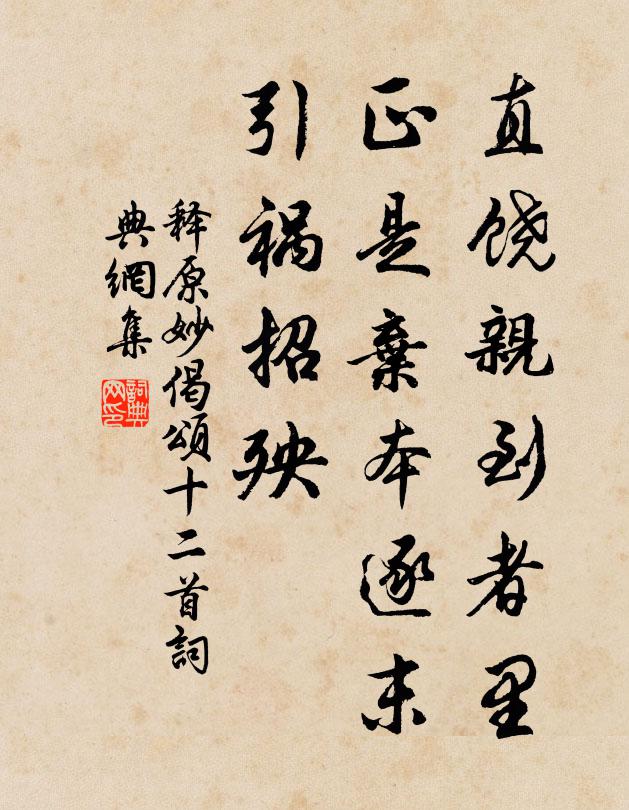 直饶親到者里
正是棄本逐末
引祸招殃
释原妙偈頌十二首詞
典網集
詞典
网印